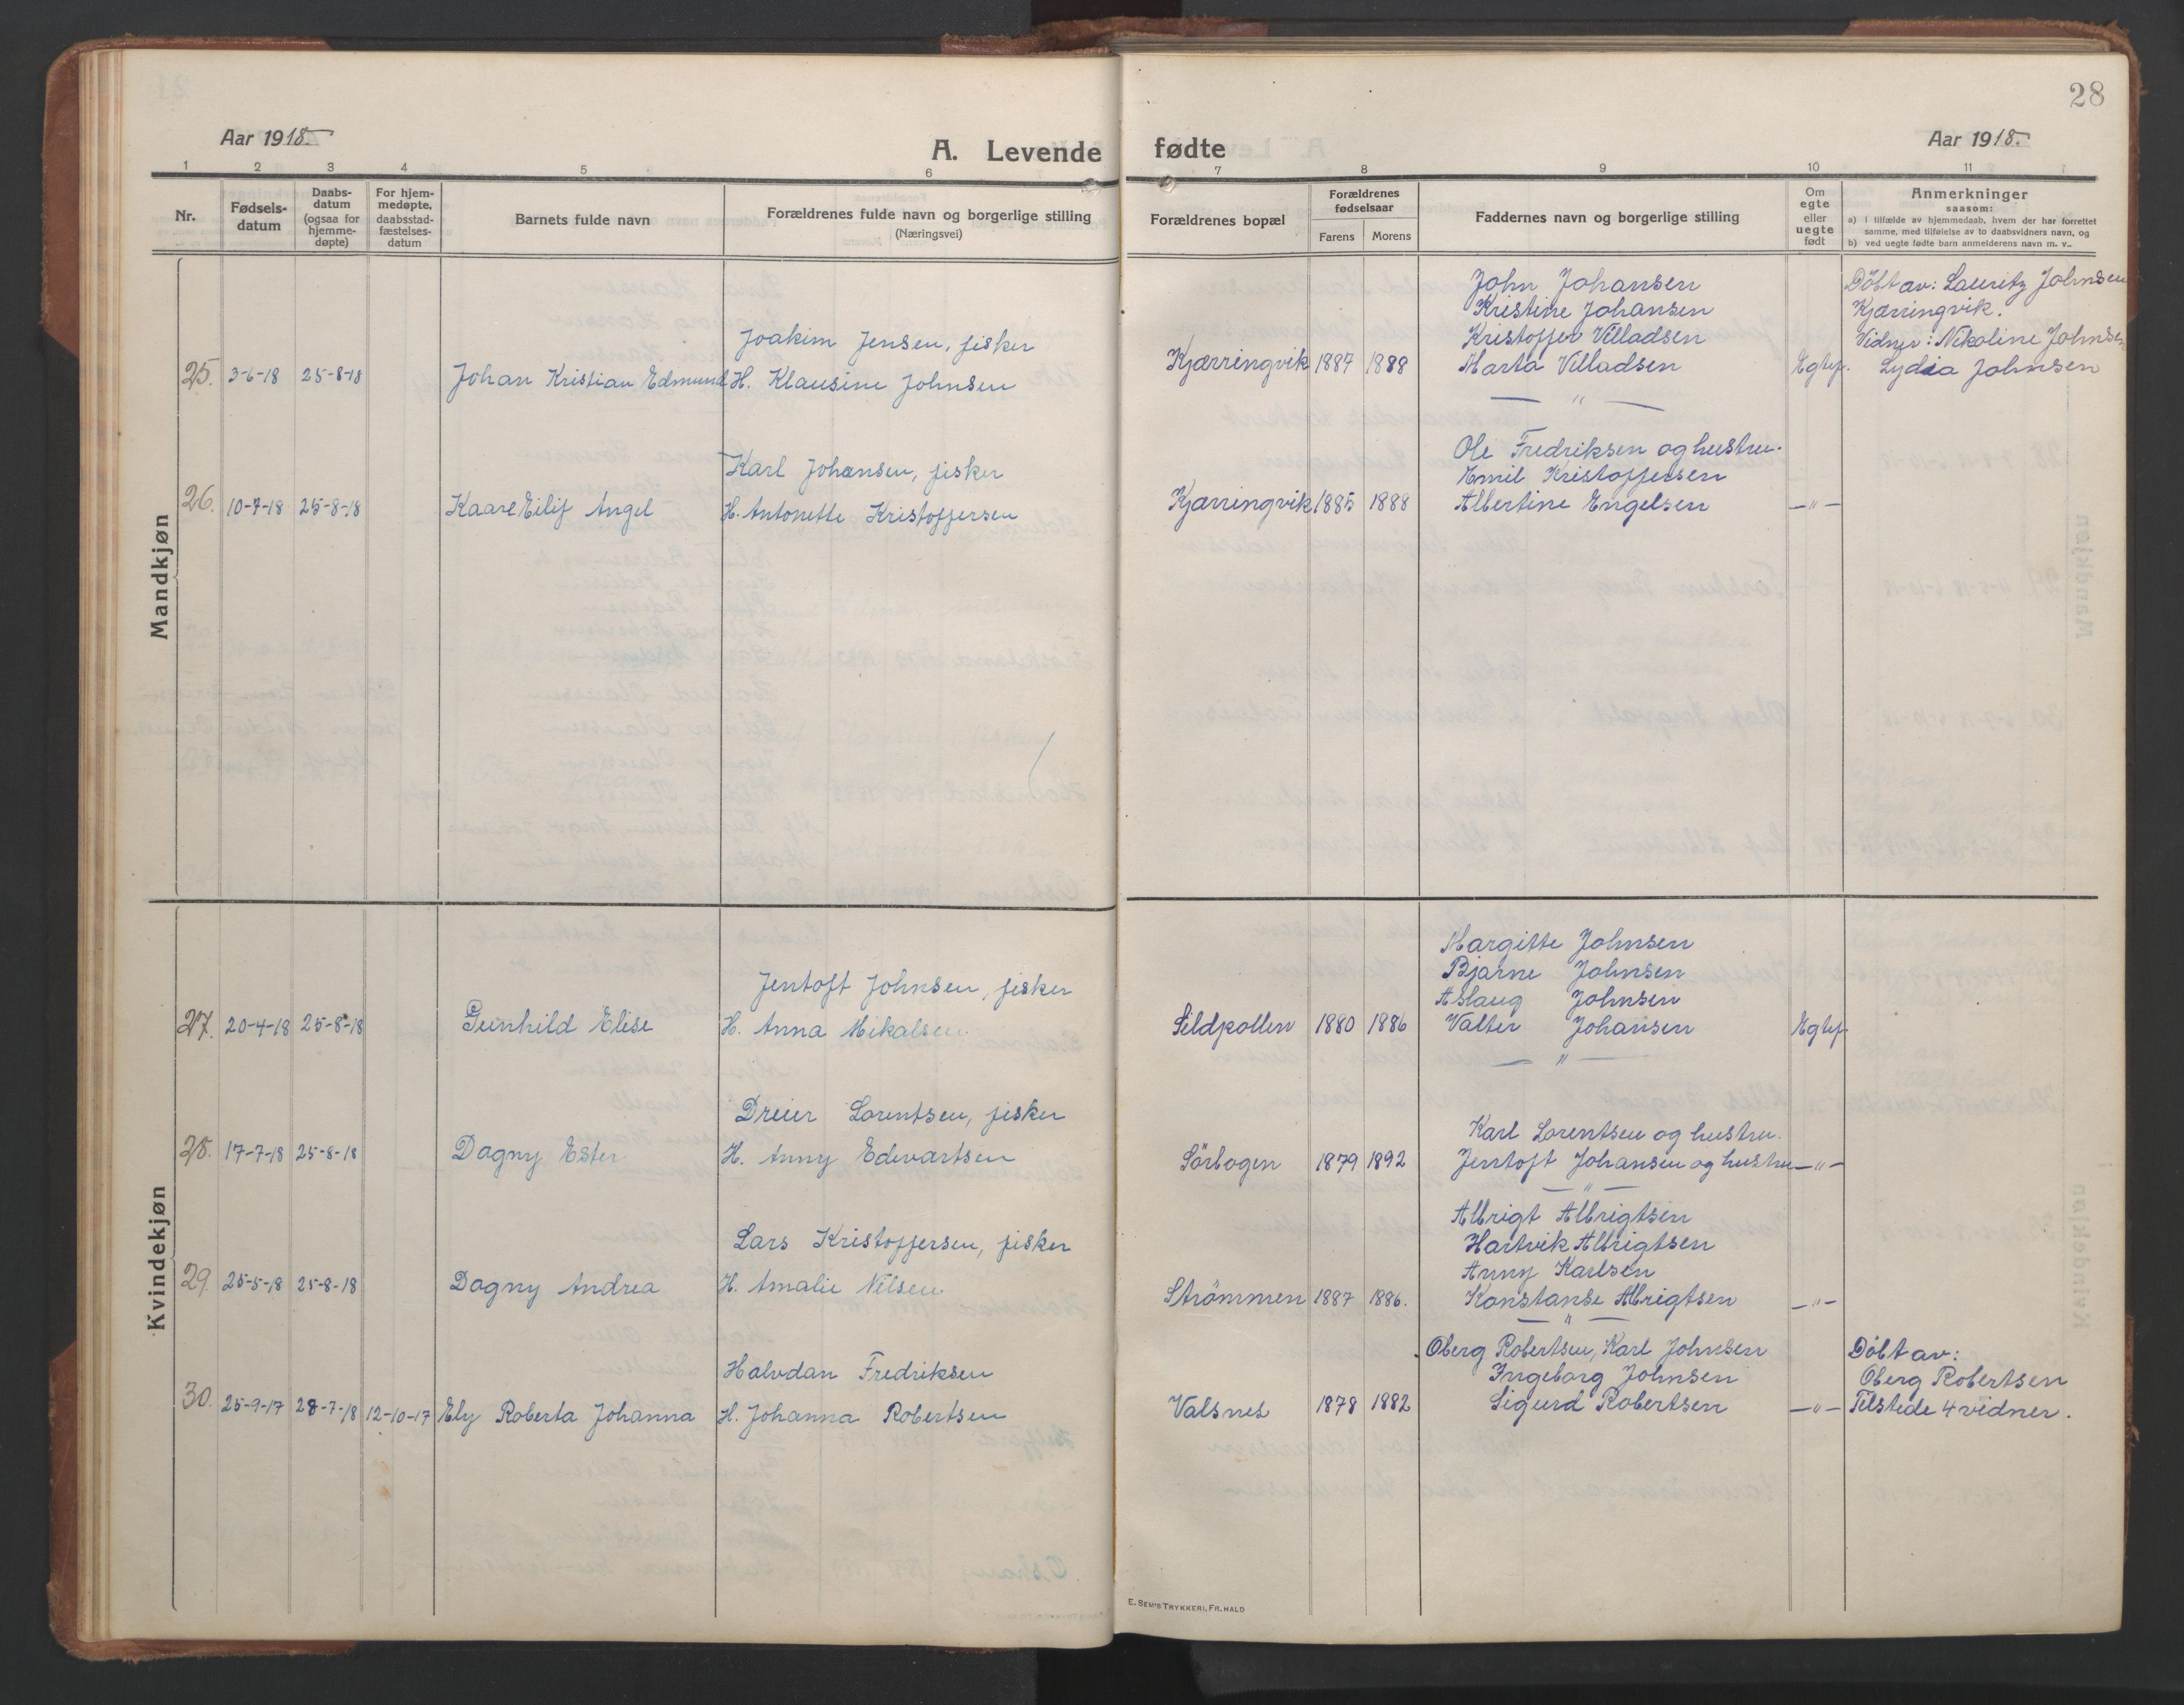 28
Aar 1918.
A. Levende fødte
Aar 1918.
1 2 3 4 5 6 7 8 9 10 11
Nr.
Fødsels-
datum
Daabs-
datum
(ogsaa for
hjemme-
døpte)
For hjem-
medøpte,
daabsstad-
fæstelses-
datum
Barnets fulde navn
Forældrenes fulde navn og borgerlige stilling
(Næringsvei)
Forældrenes bopæl
Forældrenes
fødselsaar
Farens Morens
Faddernes navn og borgerlige stilling
Om
egte
eller
uegte
født
Anmerkninger
saasom:
a) i tilfælde av hjemmedaab, hvem der har forrettet
samme, med tilføielse av to daabsvidners navn, og
b) ved uegte fødte barn anmelderens navn m. v..
Mandkjøn
25. 3-6-18 25-8-18
Johan Kristian Edmund
Joakim Jensen, fisker
H. Klausine Johnsen
Kjærringvik 1887 1888
John Johansen
Kristine Johansen
Kristoffer Villadsen
Marta Villadsen
— " —
Egtef.
Döbt av: Lauritz Johnsen
Kjærringvik.
Vidner: Nikoline Johnsen
Lydia Johnsen
26. 10-7-18 25-8-18
Kaare Eilif Angel
Karl Johansen, fisker
H. Antonette Kristoffersen
Kjærringvik 1885 1888
Ole Fredriksen og hustru.
Emil Kristoffersen
Albertine Engelsen
— " —
Kvindekjøn
27. 20-4-18 25-8-18
Gunhild Elise
Jentoft Johnsen, fisker
H. Anna Mikalsen
Sildpollen 1880 1886
Margitte Johnsen
Bjarne Johnsen
Aslaug Johnsen
Valter Johansen
— " —
Egtef.
28. 17-7-18 25-8-18
Dagny Ester
Dreier Lorentsen, fisker
H. Anny Edvartsen
Sörbogen 1879 1892
Karl Lorentsen og hustru.
Jentoft Johansen og hustru
— " —
— " —
29. 25-5-18 25-8-18
Dagny Andrea
Lars Kristoffersen, fisker
H. Amalie Nilsen
Strömmen 1887 1886.
Albrigt Albrigtsen
Hartvik Albrigtsen
Anny Karlsen
Konstanse Albrigtsen
— " —
— " —
30. 25-9-17 28-7-18 12-10-17
Ely Roberta Johanna
Halvdan Fredriksen
H. Johanna Robertsen
Valsnes 1878 1882
Oberg Robertsen, Karl Johnsen
Ingeborg Johnsen
Sigurd Robertsen
— " —
Döbt av:
Oberg Robertsen
Tilstede 4 vidner.
E. SEM'S TRYKKERI, FR.HALD